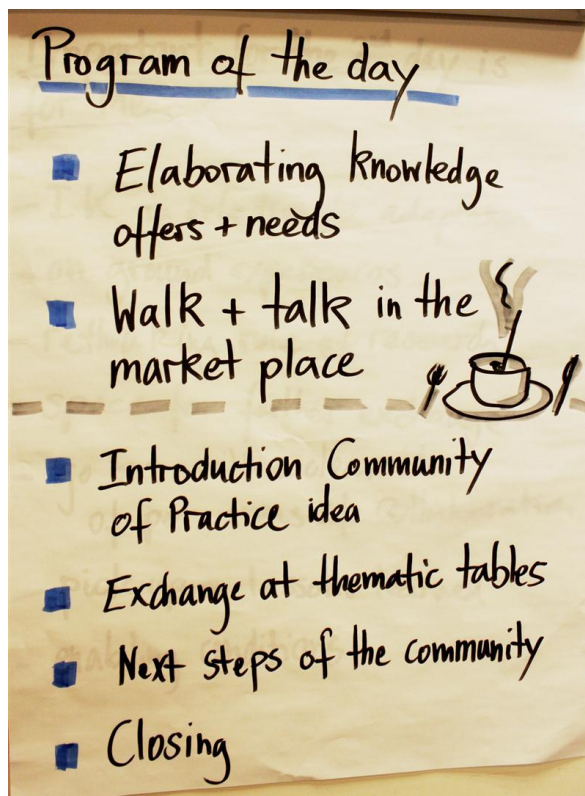 Program of the day
Elaborating knowledge
offers + needs
Walk + talk in the
market place
Introduction Community
of Practice idea
Exchange at thematic tables
Next steps of the community
Closing